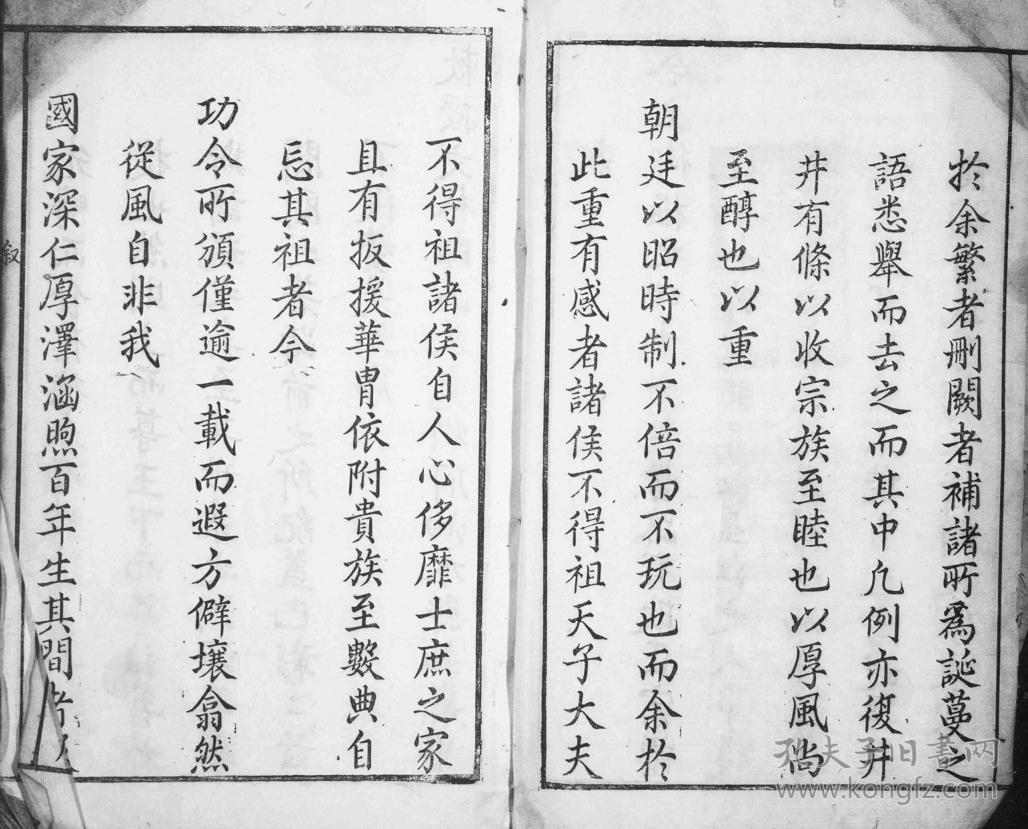 於余繁者刪闕者補諸所為誕蔓之
語悉舉而去之而其中凡例亦復井
井有條以收宗族至睦也以厚風尚
至醇也以重
朝廷以昭時制不倍而不玩也而余於
此重有感者諸侯不得祖天子大夫
不得祖諸侯自人心侈靡士庶之家
且有扳援華冑依附貴族至數典自
忘其祖者今
功令所頒僅逾一載而遐方僻壤翕然
從風自非我
國家深仁厚澤涵煦百年生其間者
叙
孔夫子旧书网
www.kongfz.com